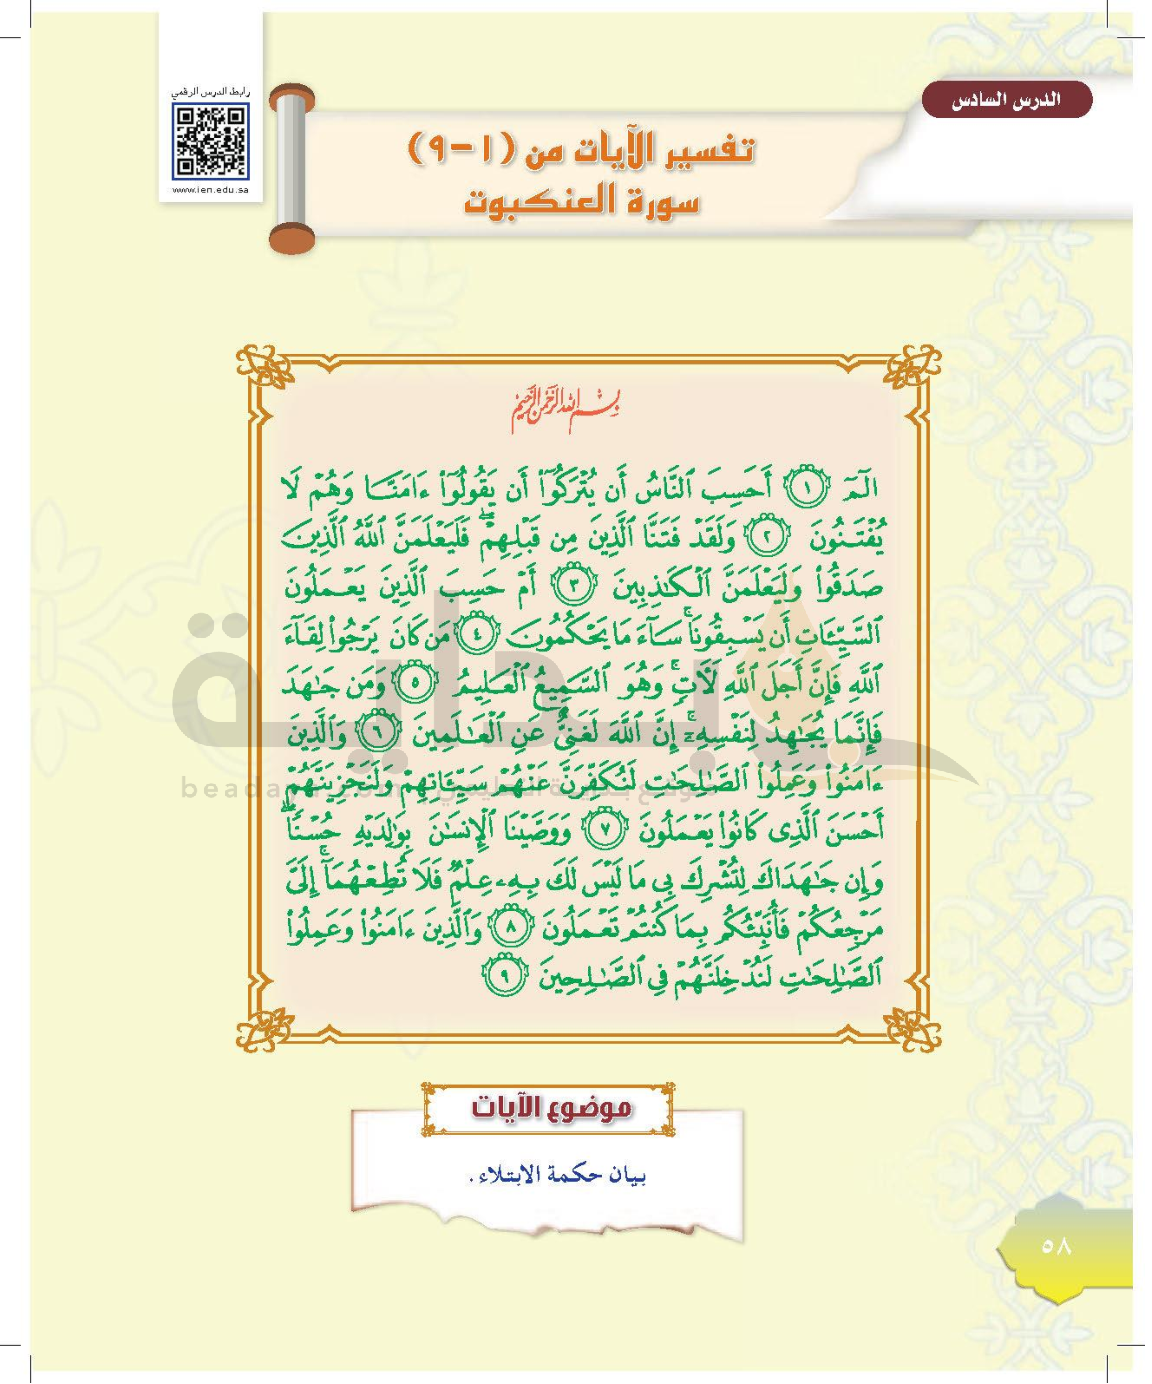 الدرس السادس
رابط الدرس الرقمي
www.ien.edu.sa
تفسير الآيات من (١-٩)
سورة العنكبوت
بِسْمِ اللَّهِ الرَّحْمَٰنِ الرَّحِيمِ
الٓمٓ ١ أَحَسِبَ ٱلنَّاسُ أَن يُتْرَكُوٓا۟ أَن يَقُولُوٓا۟ ءَامَنَّا وَهُمْ لَا
يُفْتَنُونَ ٢ وَلَقَدْ فَتَنَّا ٱلَّذِينَ مِن قَبْلِهِمْ ۖ فَلَيَعْلَمَنَّ ٱللَّهُ ٱلَّذِينَ
صَدَقُوا۟ وَلَيَعْلَمَنَّ ٱلْكَٰذِبِينَ ٣ أَمْ حَسِبَ ٱلَّذِينَ يَعْمَلُونَ
ٱلسَّيِّـَٔاتِ أَن يَسْبِقُونَا ۚ سَآءَ مَا يَحْكُمُونَ ٤ مَن كَانَ يَرْجُوا۟ لِقَآءَ
ٱللَّهِ فَإِنَّ أَجَلَ ٱللَّهِ لَـَٔاتٍ ۚ وَهُوَ ٱلسَّمِيعُ ٱلْعَلِيمُ ٥ وَمَن جَٰهَدَ
فَإِنَّمَا يُجَٰهِدُ لِنَفْسِهِۦٓ ۚ إِنَّ ٱللَّهَ لَغَنِىٌّ عَنِ ٱلْعَٰلَمِينَ ٦ وَٱلَّذِينَ
ءَامَنُوا۟ وَعَمِلُوا۟ ٱلصَّٰلِحَٰتِ لَنُكَفِّرَنَّ عَنْهُمْ سَيِّـَٔاتِهِمْ وَلَنَجْزِيَنَّهُمْ
أَحْسَنَ ٱلَّذِى كَانُوا۟ يَعْمَلُونَ ٧ وَوَصَّيْنَا ٱلْإِنسَٰنَ بِوَٰلِدَيْهِ حُسْنًا ۖ
وَإِن جَٰهَدَاكَ لِتُشْرِكَ بِى مَا لَيْسَ لَكَ بِهِۦ عِلْمٌ فَلَا تُطِعْهُمَآ ۚ إِلَىَّ
مَرْجِعُكُمْ فَأُنَبِّئُكُم بِمَا كُنتُمْ تَعْمَلُونَ ٨ وَٱلَّذِينَ ءَامَنُوا۟ وَعَمِلُوا۟
ٱلصَّٰلِحَٰتِ لَنُدْخِلَنَّهُمْ فِى ٱلصَّٰلِحِينَ ٩
بداية
موضوع الآيات
بيان حكمة الابتلاء.
٥٨